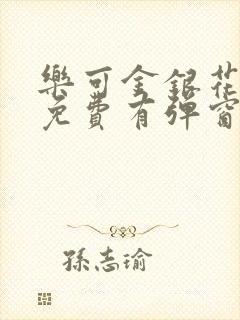 樂可金銀花
免費有彈窗
孫志瑜